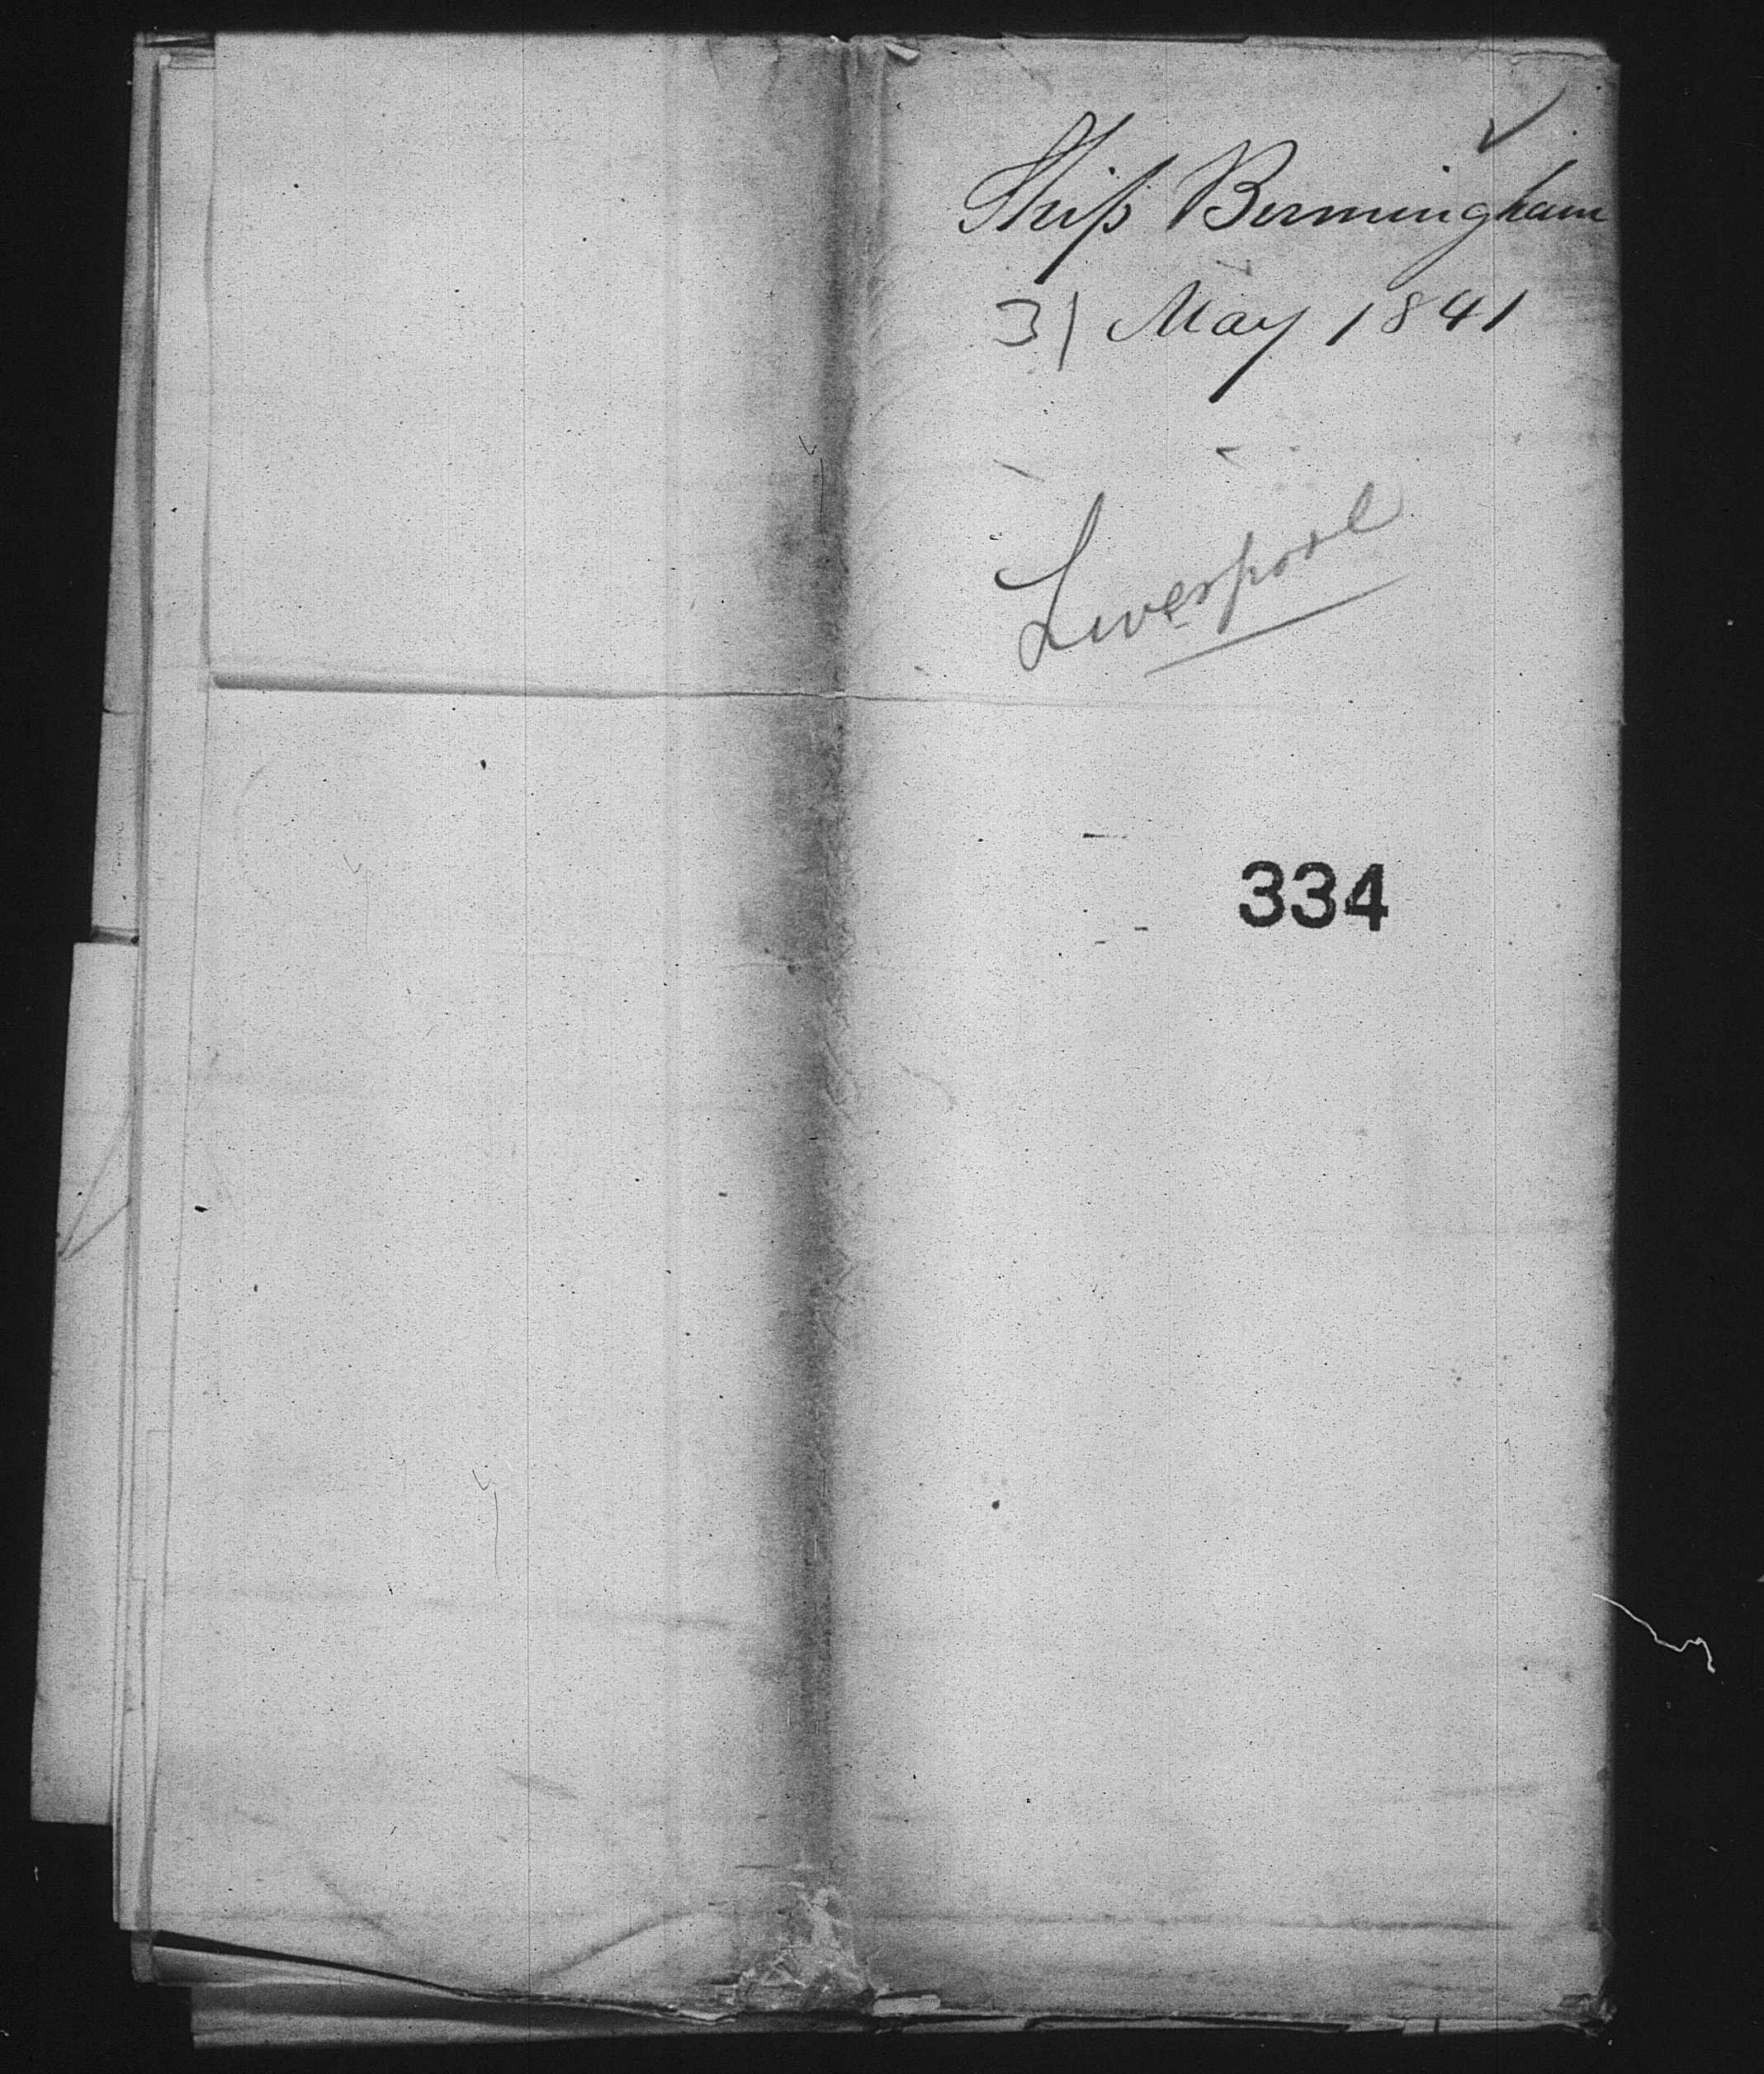 Ship Birmingham
31 May 1841
Liverpool
334